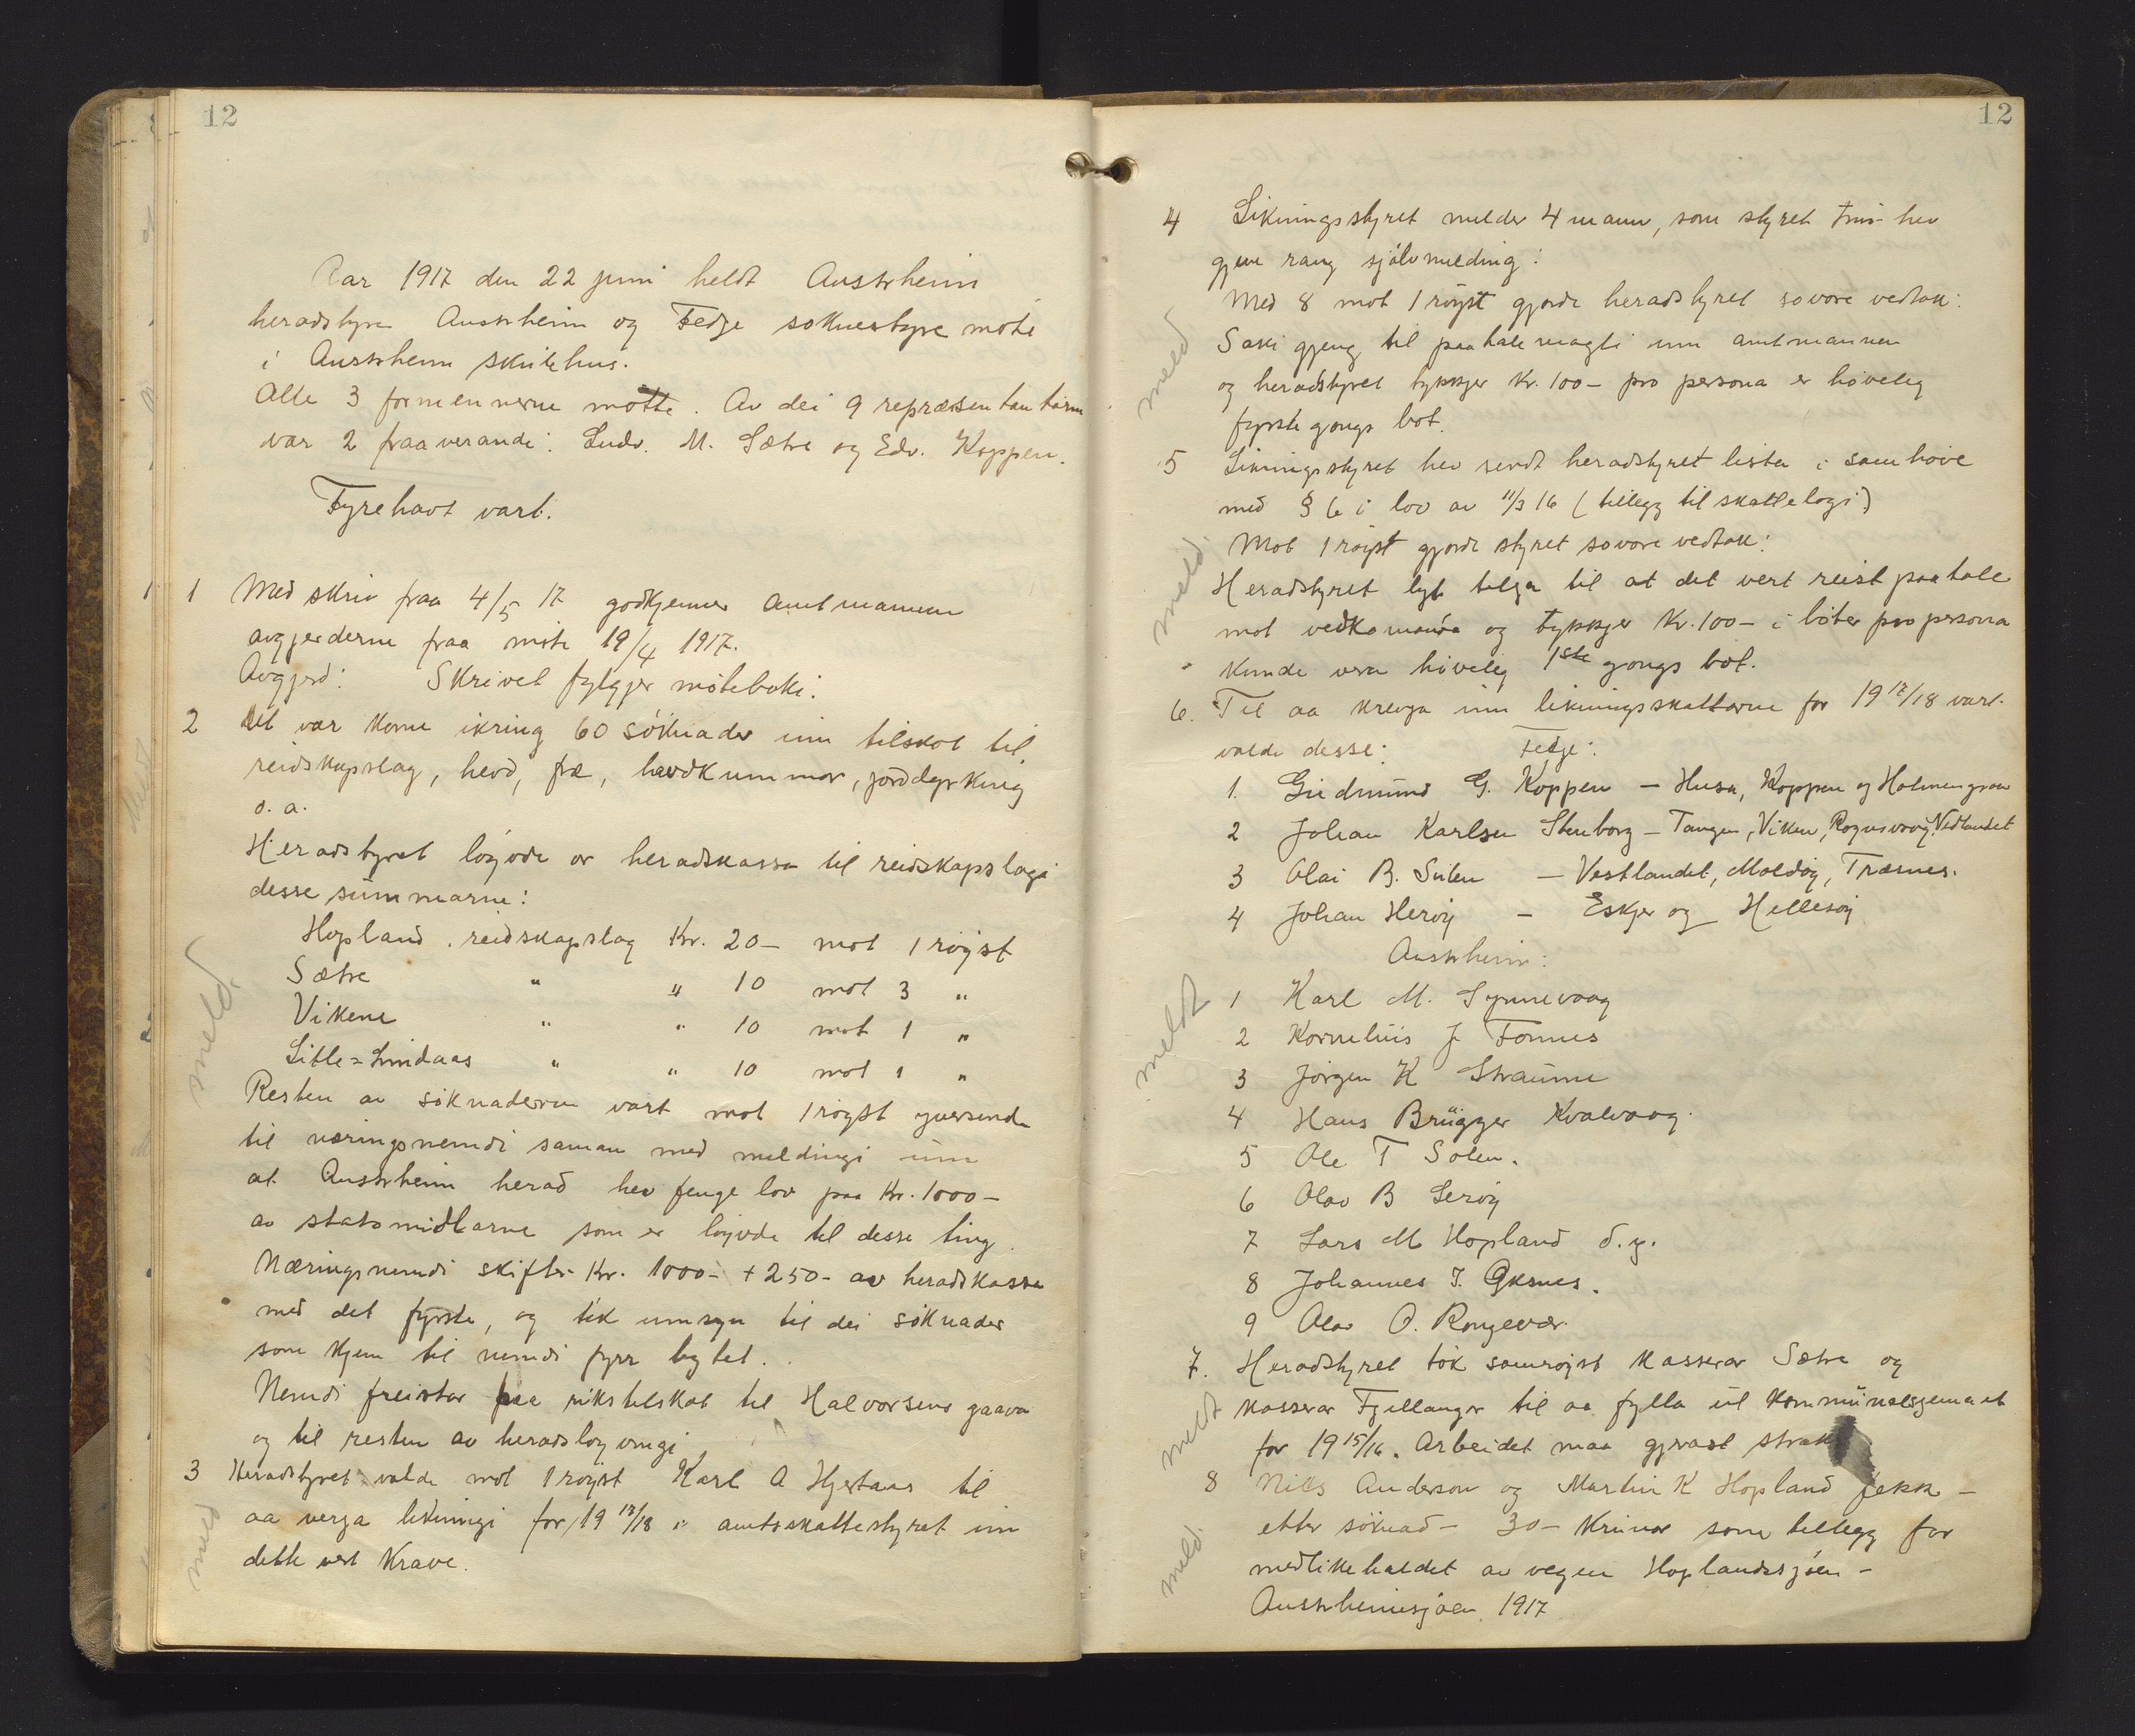 12
Aar 1917 den 22 juni heldt Austrheim
heradstyre Austrheim og Fedje soknestyre möte
i Austrheim skulehus.
Alle 3 formennerne mötte. Av dei 9 repræsentantarne
var 2 fraaverande: Ludv. M. Sætre og Edv. Koppen.
Fyrehavt vart.
1 Med skriv fraa 4/5 17 godkjenner amtmannen
avgjerderne fraa möte 19/4 1917.
Avgjerd: Skrivet fylgjer möteboki.
2 Det var kome ikring 60 söknader um tilskot til
reidskapslag, hevd, fræ, havdkummar, jorddyrking
o. a.
Heradstyret löyvde or heradskassa til reidskapslagi
desse summarne:
Hopland reidskapslag Kr. 20- mot 1 röyst
Sætre " " 10 mot 3 "
Vikene " " 10 mot 1 "
Litle=Lindaas " " 10 mot 1 "
meld.
Resten av söknaderne vart mot 1 röyst yversende
til næringsnemdi saman med meldingi um
at Austrheim herad hev fenge lov paa Kr. 1000-
av statsmidlarne som er löyvde til desse ting.
Næringsnemdi skifter Kr. 1000- + 250- av heradskassa
med det fyrste, og tek umsyn til dei söknader
som kjem til nemdi fyrr bytet.
Nemdi freistar faa rikstilskot til Halvorsens gaava
og til resten av heradslöyvingi
3 Heradstyret valde mot 1 röyst Karl A Hjertaas til
aa verja likningi for 19 17/18 i amtsskattestyret um
dette vert krave.
meld
12
4 Likningsstyret melder 4 mann, som styret trur hev
gjeve rang sjölvmelding:
Med 8 mot 1 röyst gjorde heradstyret sovore vedtak:
Saki gjeng til paatalemagti um amtmannen
og heradstyret tykkjer Kr. 100- pro persona er höveleg
fyrste gongs bot.
meld
5 Likningsstyret hev sendt heradstyret lista i samhöve
med § 6 i lov av 11/3 16 (tillegg til skattelogi)
Mot 1 röyst gjorde styret sovore vedtak:
Heradstyret lyt telja til at det vert reist paatale
mot vedkomande og tykkjer Kr. 100- i böter pro persona
kunde vera höveleg 1ste gongs bot.
meld.
6. Til aa krevja inn likningsskattarne for 19 17/18 vart
valde desse: Fedje:
1. Gudmund G. Koppen - Husa, Koppen og Holmengraa
2 Johan Karlsen Stenborg - Tangen, Viken, Rognsvaag, Vedlandet
3 Olai B. Sulen - Vestlandet, Moldöy, Træsnes.
4 Johan Heröy - Eskjer og Hellesöy
Austrheim:
1 Karl M. Synnevaag
2 Kornelius J Fonnes
3 Jörgen K Straume
4 Hans Brügger Kvalvaag.
5 Ole T Solen.
6 Olav B Leröy
7 Lars M Hopland d.y.
8 Johannes I. Øksnes.
9 Olav O. Rongevær.
meldt
7. Heradstyret tok samröyst kasserar Sætre og
kasserar Fjellanger til aa fylla ut kommuneskjemaet
for 19 15/16. Arbeidet maa gjerast straks
meldt
8 Nils Anderson og Martin K Hopland fekk -
etter söknad - 30- krunor som tillegg for
medlikehaldet av vegen Hoplandssjöen -
Austrheimsjöen 1917
meld.